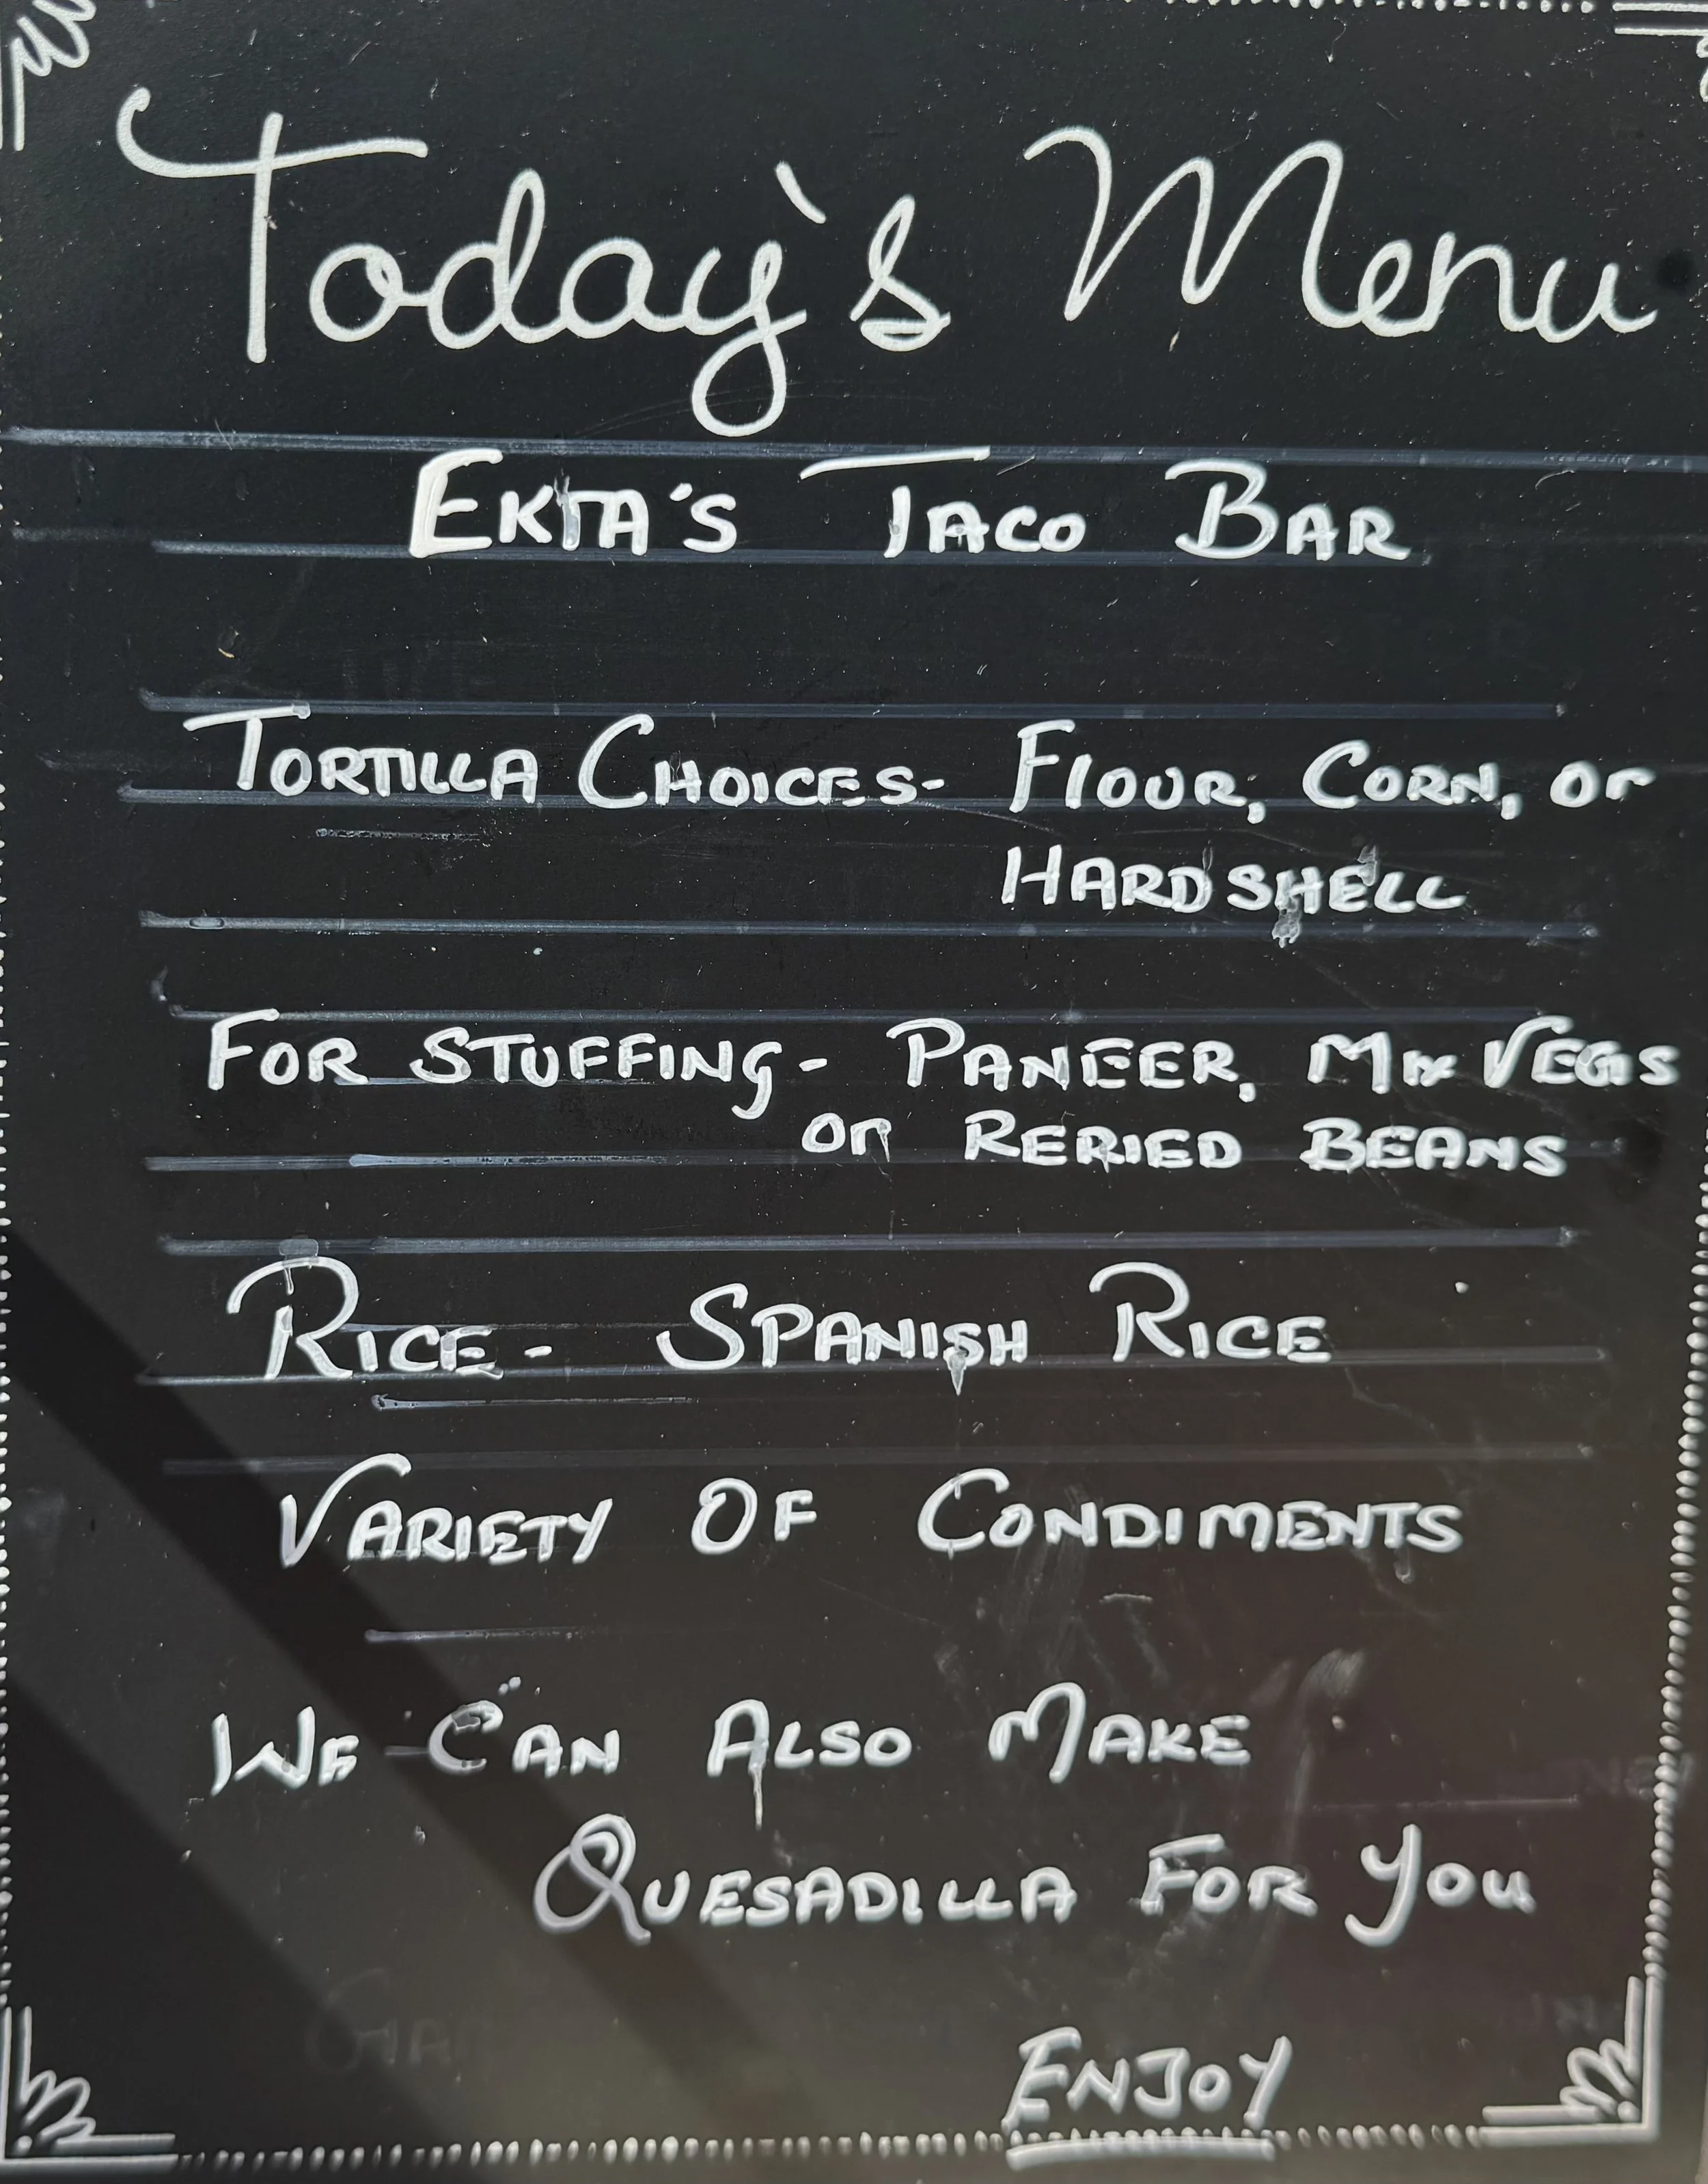 Today's Menu
EKTA'S TACO BAR
TORTILLA CHOICES- FlOUR, CORN, or
HARD SHELL
FOR STUFFING- PANEER, MIX VEGS
or RERIED BEANS
RICE- SPANISH RICE
VARIETY OF CONDIMENTS
WE CAN ALSO MAKE
QUESADILLA FOR YOU
ENJOY